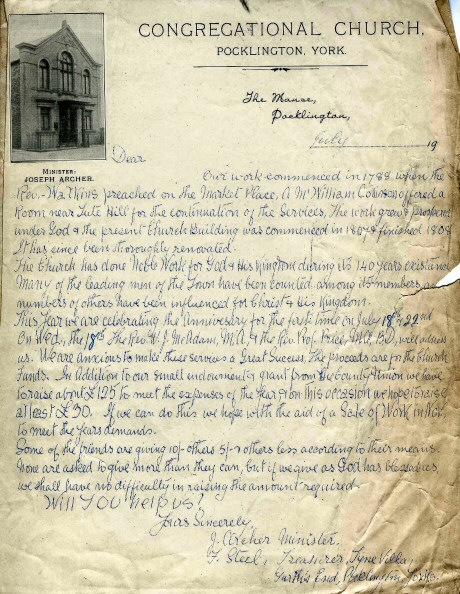 CONGREGATIONAL CHURCH,
POCKLINGTON, YORK.
The Manse,
Pocklington,
July 19
MINISTER:
JOSEPH ARCHER.
Dear
Our work commenced in 1788 when the
Rev. Watkins preached on the Market Place, A Mr William Cowson offered a
Room near Tute Hill for the continuation of the Services. The work grew & prospered
under God & the present Church Building was commenced in 1807 & finished 1808
It has since been thoroughly renovated.
The Church has done Noble Work for God & His Kingdom during its 140 years existance
Many of the leading men of the Town have been counted among its members and
numbers of others have been influenced for Christ & His Kingdom.
This Year we are celebrating the Anniversary for the first time on July 18th & 22nd
On Wed, the 18th The Rev. H. J. McAdam, M.A, & the Rev. Prof. Price, M.A, B.D, will address
us. We are anxious to make these services a Great Success. The proceeds are for the Church
Funds. In Addition to our small indowment & grant from the County Union we have
to raise about £125 to meet the expenses of the Year & on this occasion we hope to raise
at least £30. If we can do this we hope with the aid of a Sale of Work in Nov.
to meet the years demands.
Some of the friends are giving 10/- others 5/- & others less according to their means.
None are asked to give more than they can, but if we give as God has blessed us
we shall have no difficulty in raising the amount required.
Will YOU help us?
Yours Sincerely,
J. Archer Minister.
F. Steel, Treasurer, Tyne Villa,
Garths End, Pocklington, Yorks.